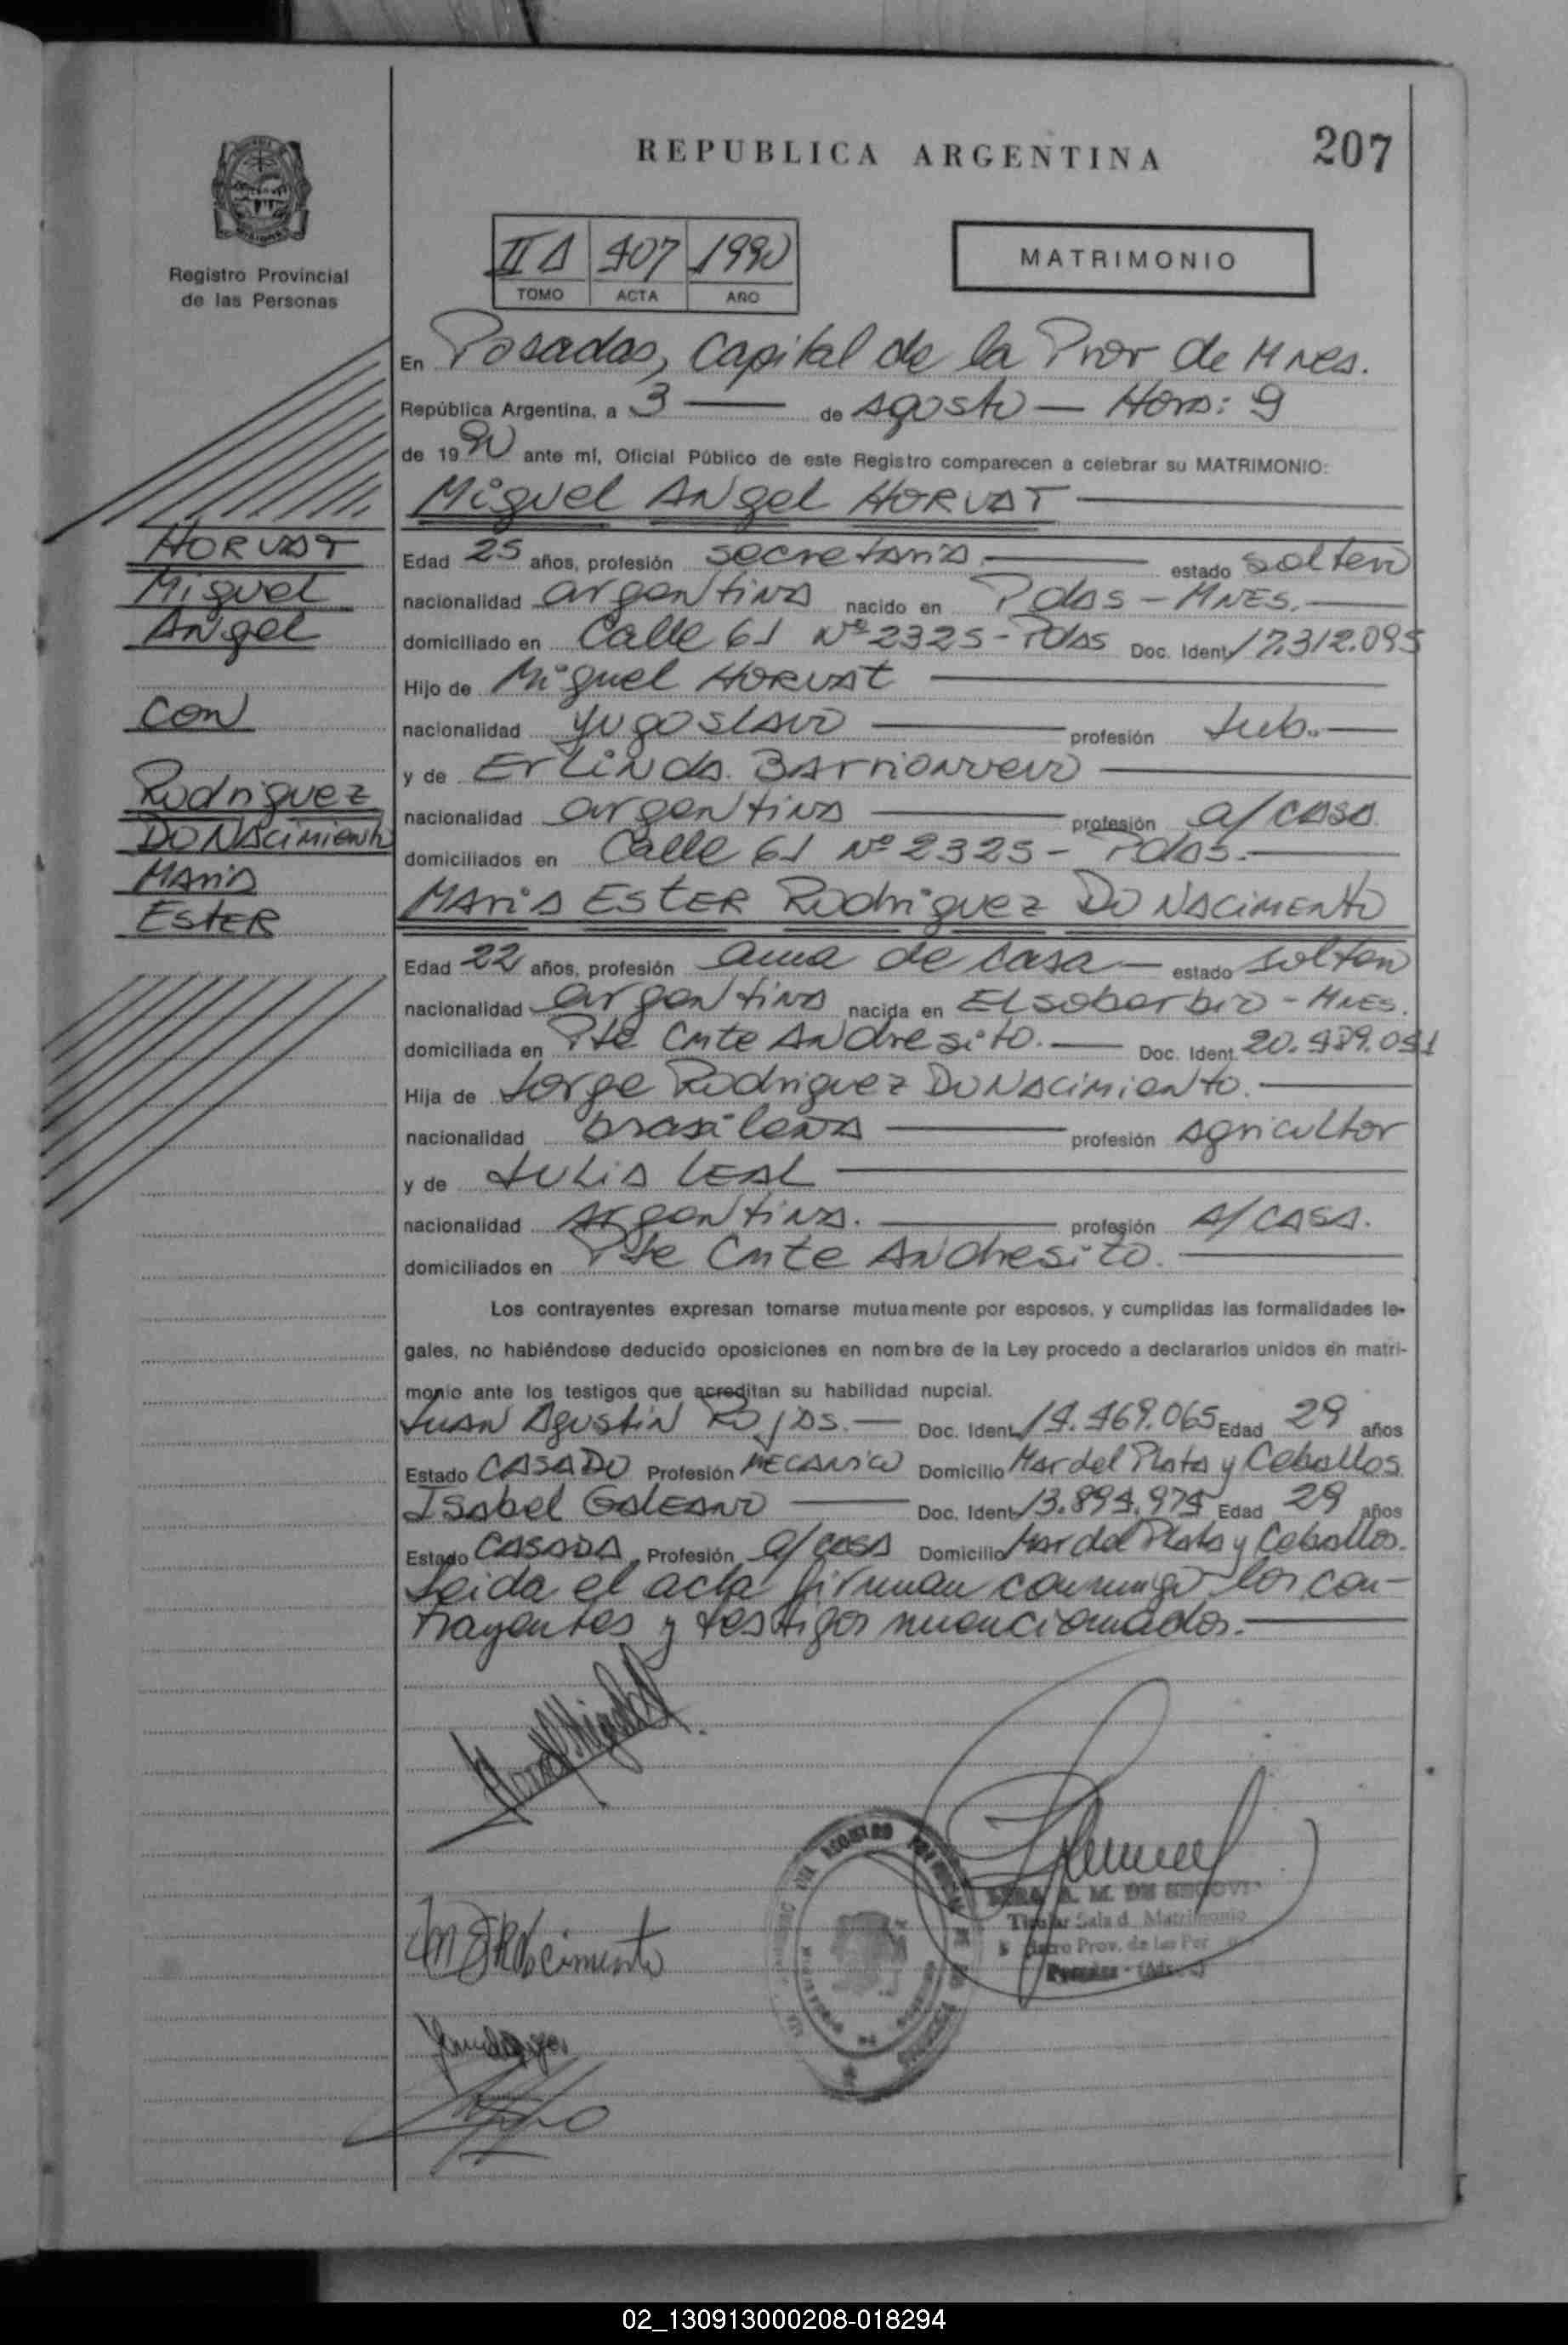 REPUBLICA ARGENTINA
207
Registro Provincial
de las Personas
II A 407 1990
TOMO ACTA AÑO
MATRIMONIO
En Posadas, Capital de la Prov de Mnes.
República Argentina, a 3 de Agosto Hora: 9
de 1990 ante mí, Oficial Público de este Registro comparecen a celebrar su MATRIMONIO:
Miguel Angel HORVAT
HORVAT
Miguel
Angel
con
Rodriguez
DO NAcimiento
MAriA
ESTER
Edad 25 años, profesión secretario estado soltero
nacionalidad argentina nacido en Pdas - MNES.
domiciliado en Calle 61 Nº 2325 - Pdas Doc. Ident. 17.312.095
Hijo de Miguel HORVAT
nacionalidad yugoslavo profesión Jub.
y de Erlinda BArrionuevo
nacionalidad argentina profesión a/casa
domiciliados en Calle 61 Nº 2325 - Pdas.
MAriA ESTER Rodriguez DO NACIMENTO
Edad 22 años, profesión ama de casa estado soltera
nacionalidad argentina nacida en El soberbio - MNES.
domiciliada en Pte Cnte Andresito. Doc. Ident. 20.489.041
Hija de Jorge Rodriguez DO NAcimiento.
nacionalidad brasileña profesión Agricultor
y de JULIA LEAL
nacionalidad Argentina. profesión A/CASA.
domiciliados en Pte Cnte Andresito.
Los contrayentes expresan tomarse mutuamente por esposos, y cumplidas las formalidades le-
gales, no habiéndose deducido oposiciones en nombre de la Ley procedo a declararlos unidos en matri-
monio ante los testigos que acreditan su habilidad nupcial.
JUAN Agustin Rojas. Doc. Ident. 14.469.065 Edad 29 años
Estado CASADO Profesión MECANICO Domicilio Mar del Plata y Ceballos
Isabel GALEANO Doc. Ident. 13.894.974 Edad 29 años
Estado CASADA Profesión a/casa Domicilio Mar del Plata y Ceballos.
Leida el acta firman conmigo los con-
trayentes y testigos mencionados.
A. M. DE SEGOVIA
Titular Sala d Matrimonio
Prov. de las Per
Posadas
02_130913000208-018294